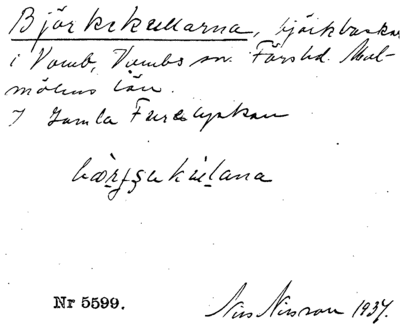 Björkekullarna, björkbackar
i Vomb, Vombs sn. Färs hd. Mal-
möhus län.
I Gamla Furelyckan
Nr 5599.
Nils Nilsson 1937.